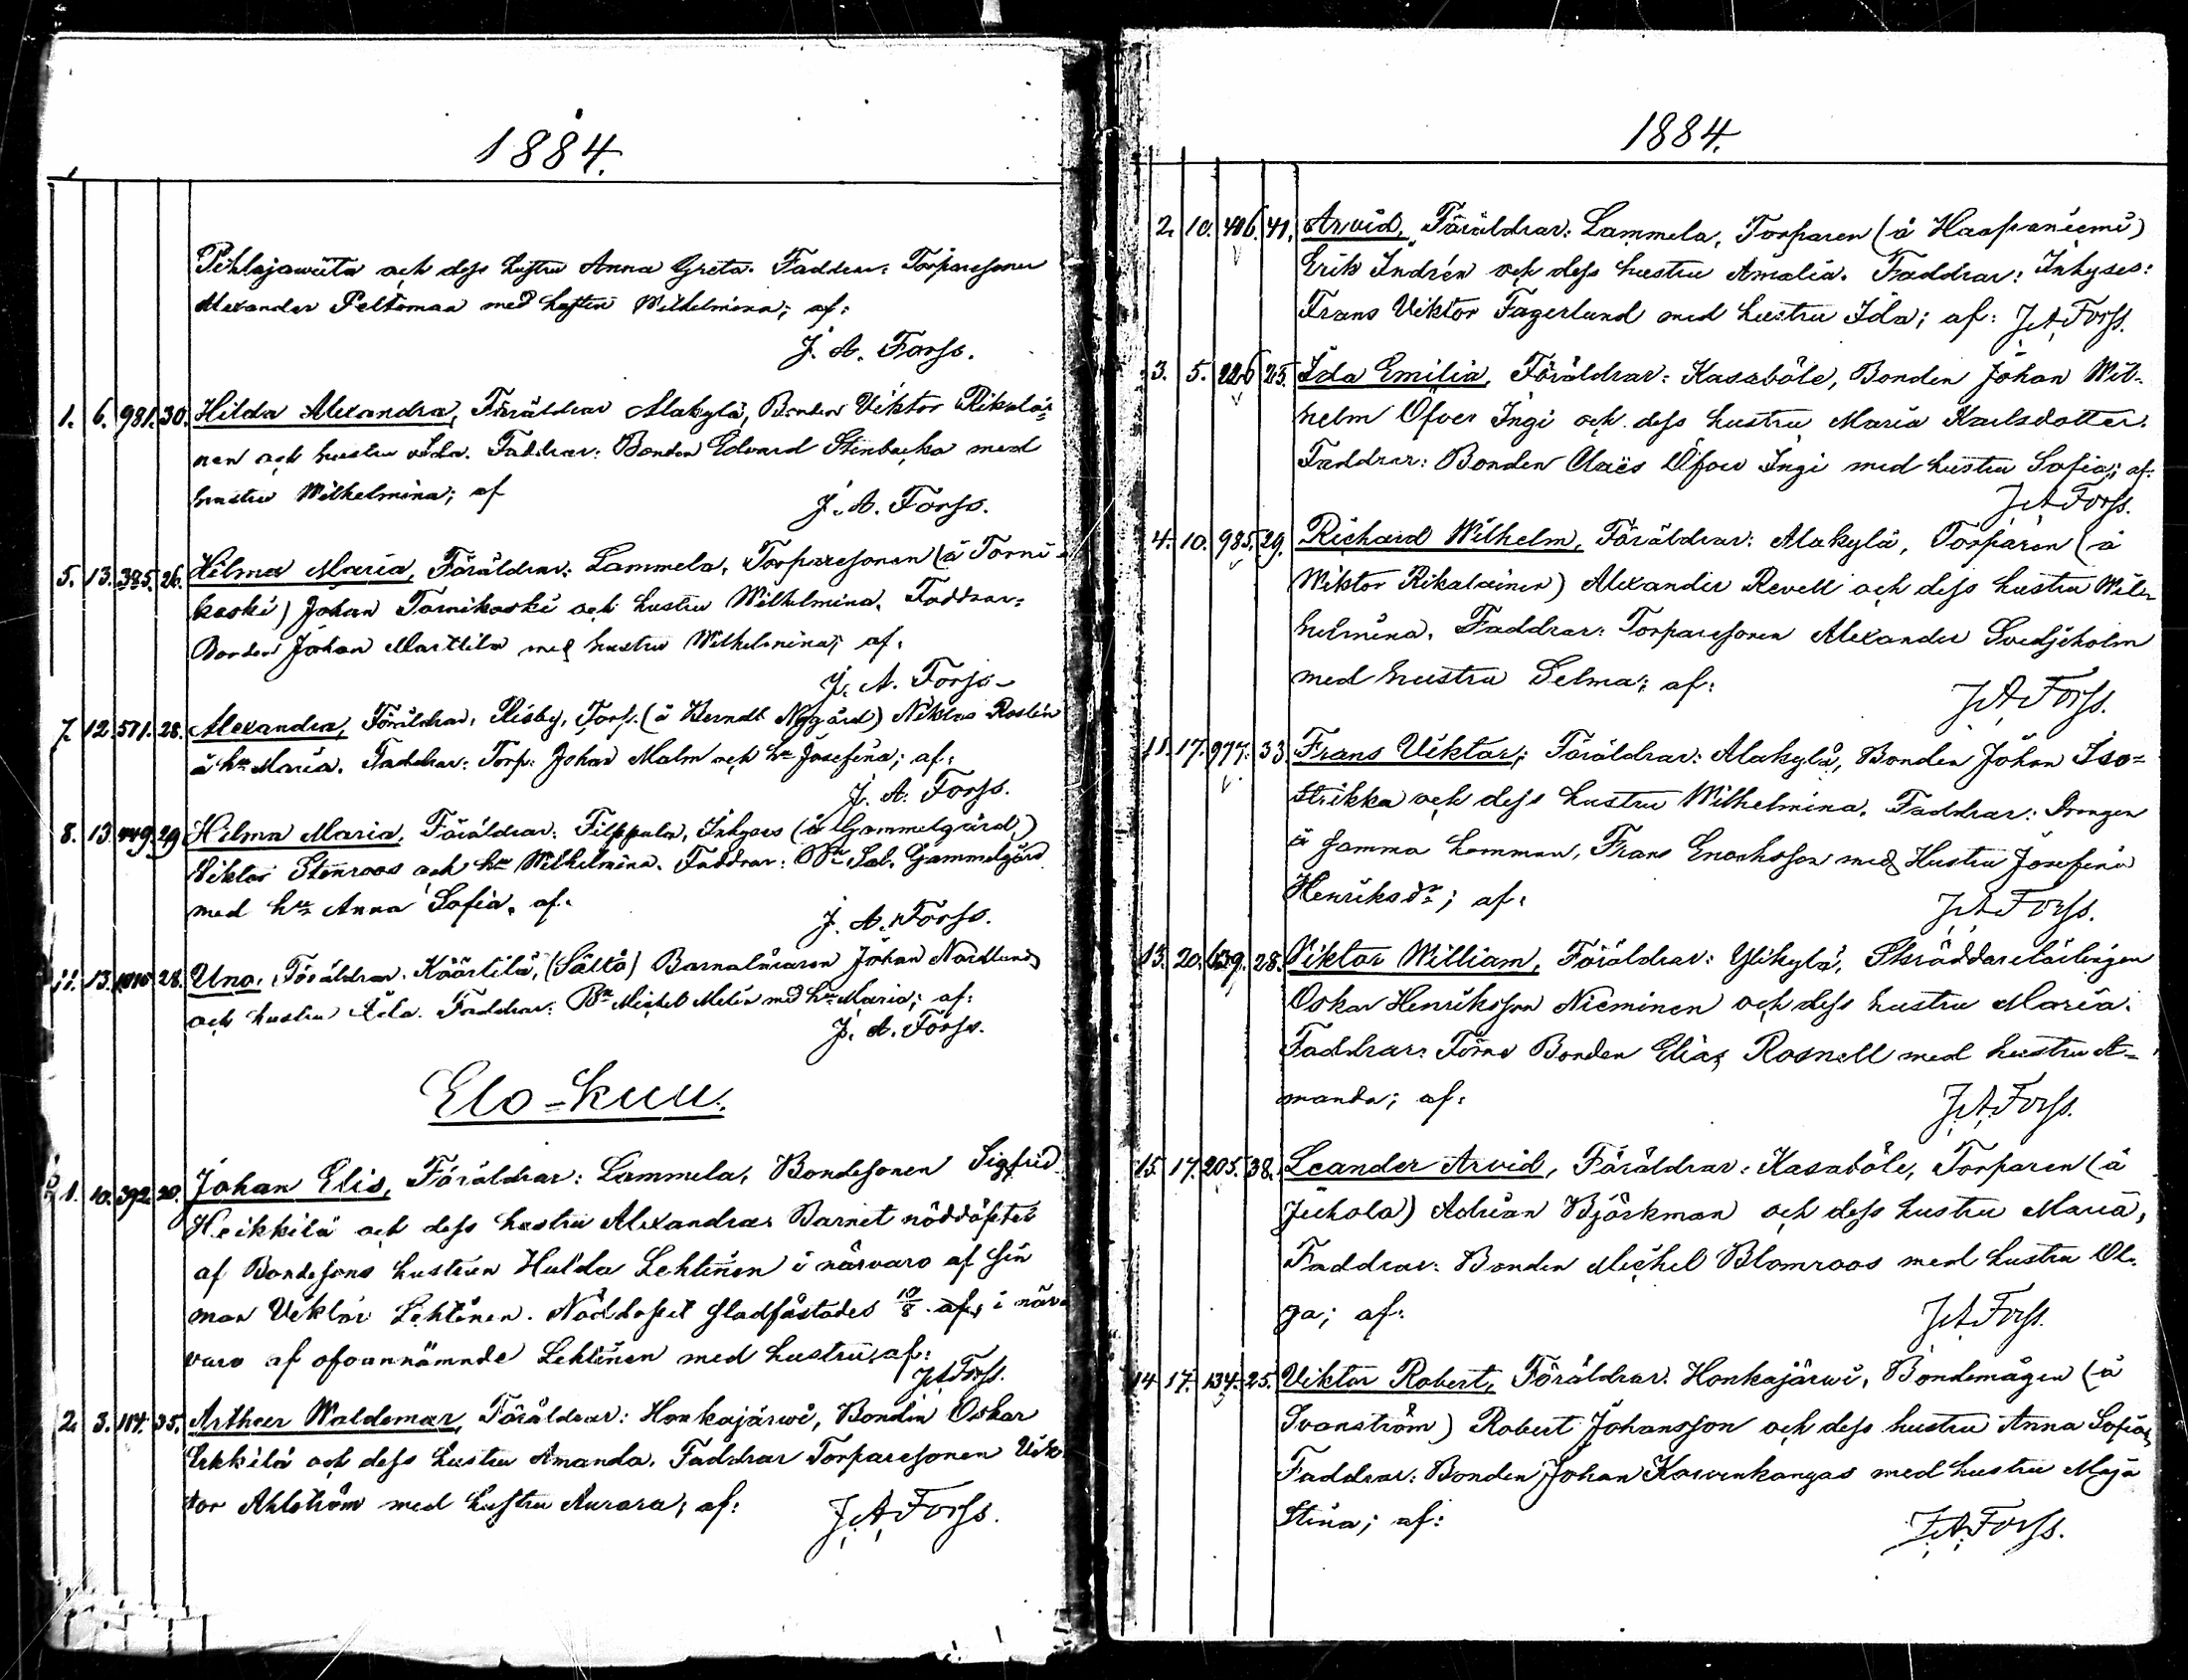 1884.
Pihlajawiita och dess hustru Anna Greta. Faddrar: Torparesonen
Alexander Peltomaa med hustru Wilhelmina; af:
J. A. Forss.
1. 6. 981. 30. Hilda Alexandra, Föräldrar Alakylä, Bonden Viktor Rikalai-
nen och hustru Ida. Faddrar: Bonden Edvard Stenbacka med
hustru Wilhelmina; af
J. A. Forss.
5. 13. 385. 26. Hilma Maria, Föräldrar: Lammela, Torparesonen (å Torni-
koski) Johan Tornikoski och hustru Wilhelmina. Faddrar:
Bonden Johan Marttila med hustru Wilhelmina; af.
J. A. Forss.
7. 12. 571. 28. Alexandra, Föräldrar, Risby, Torp. (å Berndt Nygård) Niklas Roslin
å hu Maria. Faddrar: Torp: Johan Malm och hu Josefina; af:
J. A. Forss.
8. 13. 449. 29. Hilma Maria, Föräldrar: Filppula, Inhyses (å Gammelgård)
Viktor Stenroos och hu Wilhelmina. Faddrar: Bn Sal. Gammelgård
med hu Anna Sofia. af.
J. A. Forss.
11. 13. 1010. 28. Uno. Föräldrar. Köörtilä, (Sältö) Barnaläraren Johan Nordlund
och hustru Ida. Faddrar: Bn Michel Melin med hu Maria; af:
J. A. Forss.
Elo-kuu.
1. 10. 392. 20. Johan Elis, Föräldrar: Lammela, Bondesonen Sigfrid
Heikkilä och dess hustru Alexandra. Barnet nöddöptes
af Bondesons hustrun Hulda Lehtinen i närvaro af sin
man Viktor Lehtinen. Nöddopet stadfästades 10/8 af, i när-
varo af ofvannämnde Lehtinen med hustru, af:
J.A. Forss.
2. 3. 114. 35. Arthur Waldemar, Föräldrar: Honkajärwi, Bonden Oskar
Erkkilä och dess hustru Amanda. Faddrar Torparesonen Vik-
tor Ahlström med hustru Aurora; af:
J.A. Forss.
1884.
2. 10. 406. 41. Arvid, Föräldrar: Lammela, Torparen (å Haapaniemi)
Erik Indrén och dess hustru Amalia. Faddrar: Inhyses:
Frans Viktor Fagerlund med hustru Ida; af: J.A. Forss.
3. 5. 226 25. Ida Emilia, Föräldrar: Kasaböle, Bonden Johan Wil-
helm Öfver Ingi och dess hustru Maria Karlsdotter.
Faddrar: Bonden Claës Öfver Ingi med hustru Sofia; af:
J.A. Forss.
4. 10. 985. 29. Richard Wilhelm, Föräldrar: Alakylä, Torparen (å
Wiktor Rikalainen) Alexander Revell och dess hustru Wil-
helmina. Faddrar: Torparesonen Alexander Svedjeholm
med hustru Selma; af:
J.A. Forss.
11. 17. 977. 33 Frans Viktor; Föräldrar: Alakylä, Bonden Johan Iso-
Strikka och dess hustru Wilhelmina. Faddrar: Drengen
å samma hemman, Frans Enochsson med Hustru Josefina
Henriksdr; af:
J.A. Forss.
13. 20. 639. 28. Viktor William, Föräldrar: Ylikylä, Skräddarelärlingen
Oskar Henriksson Nieminen och dess hustru Maria.
Faddrar: Förne Bonden Elias Rosnell med hustru A-
manda; af:
J.A. Forss.
15. 17. 205. 38. Leander Arvid, Föräldrar: Kasaböle, Torparen (å
Juhola) Adrian Björkman och dess hustru Maria,
Faddrar: Bonden Michel Blomroos med hustru Ol-
ga; af:
J.A. Forss.
14 17. 134. 25. Viktor Robert, Föräldrar. Honkajärwi, Bondemågen (å
Svanström) Robert Johansson och dess hustru Anna Sofia
Faddrar: Bonden Johan Korvenkangas med hustru Maja
Stina; af:
J.A. Forss.